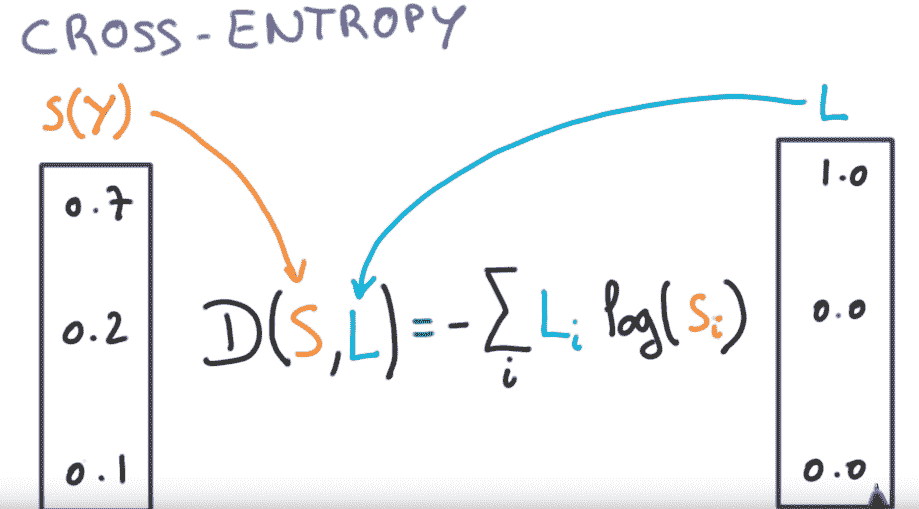 CROSS-ENTROPY
S(Y)
L
0.7
1.0
0.2
D(S,L) = - ∑i Li log(Si)
0.0
0.1
0.0